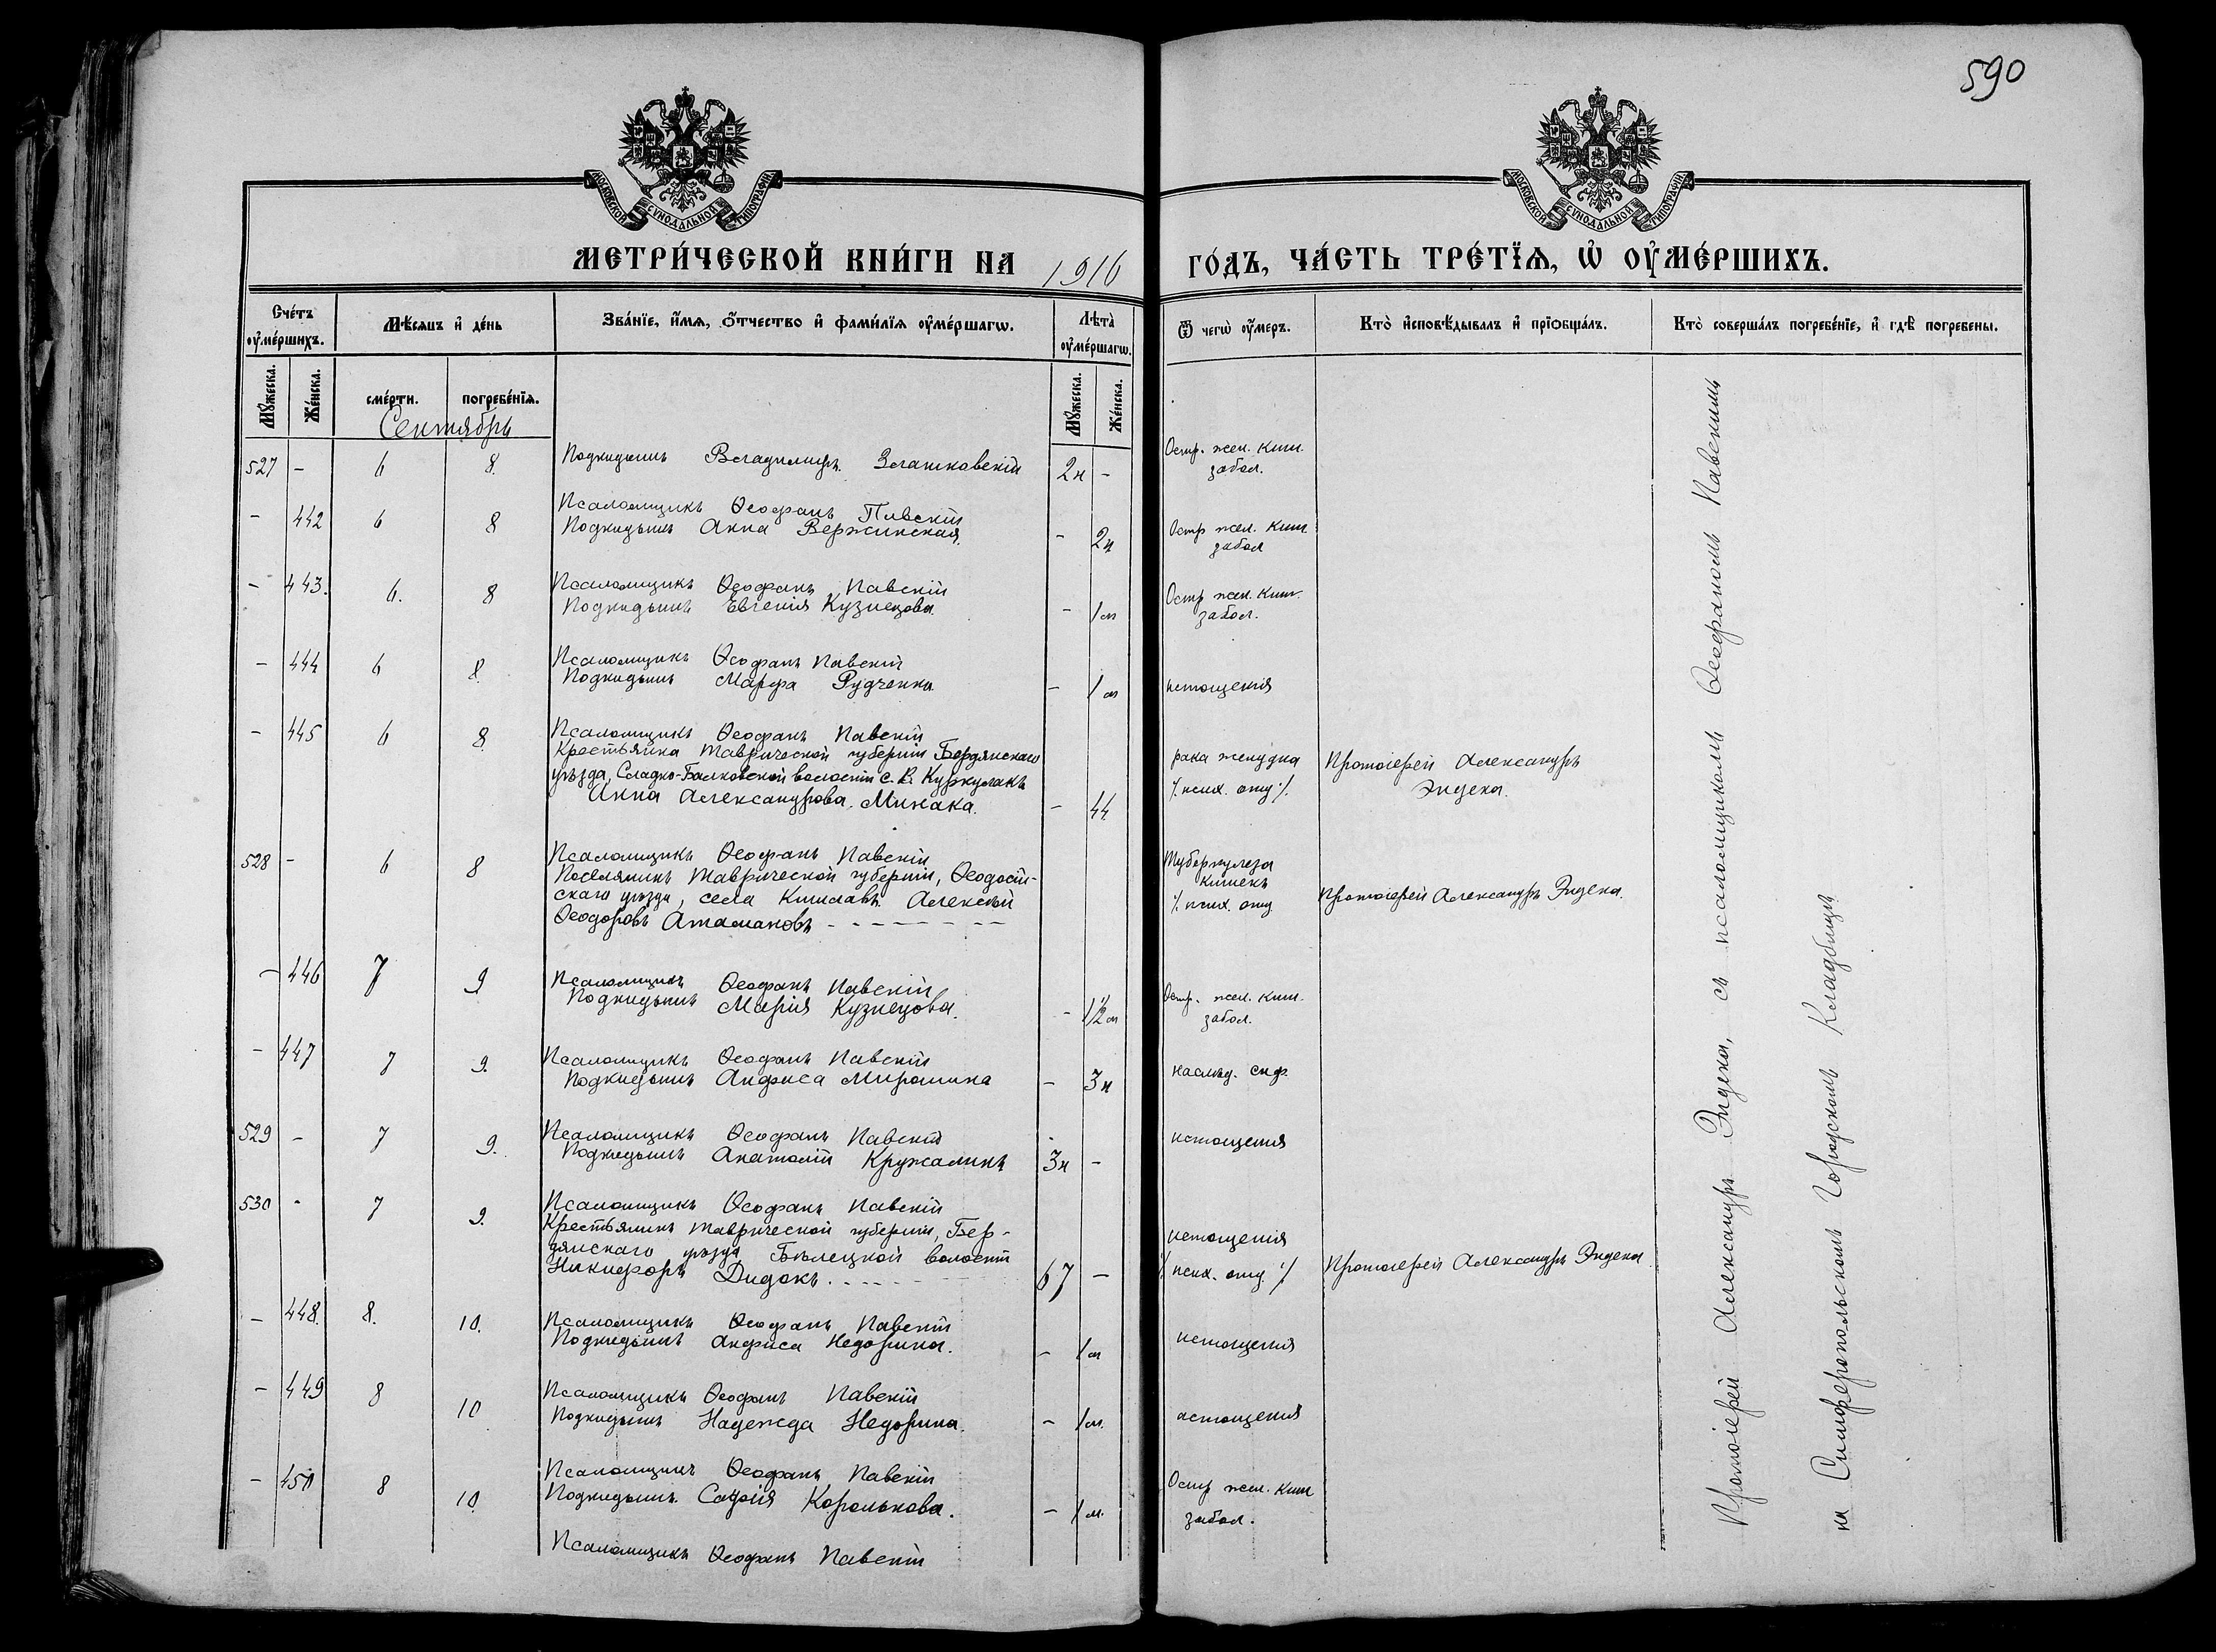 590
МОСКОВСКОЙ СѴНОДАЛЬНОЙ ТИПОГРАФІИ
МОСКОВСКОЙ СѴНОДАЛЬНОЙ ТИПОГРАФІИ
МЕТРИ́ЧЕСКОЙ КНИ́ГИ НА 1916 ГО́ДЪ, ЧА́СТЬ ТРЕ́ТЇѦ, Ѡ҆ ОУ҆МЕ́РШИХЪ.
Сче́тъ оу҆ме́ршихъ.
Мѣ́сѧцъ и҆ де́нь
Зва́нїе, и҆́мѧ, ѻ҆́тчество и҆ фами́лїѧ оу҆ме́ршагѡ.
Лѣ́та̀ оу҆ме́ршагѡ.
Ѿ чегѡ̀ оу҆́меръ.
Кто̀ и҆сповѣ́дывалъ и҆ прїѻбща́лъ.
Кто̀ соверша́лъ погребе́нїе, и҆ гдѣ̀ погребены.
Мꙋ́жеска.
Же́нска.
сме́рти.
погребе́нїѧ.
Мꙋ́жеска.
Же́нска.
Сентябрь
527 - 6 8. Подкидышъ Владиміръ 2н - Остр. жел. киш.
забол.
Псаломщикъ Ѳеофанъ Павскій
- 442 6 8 Подкидышъ Анна Вержинская. - 2н Остр жел. киш
забол
Псаломщикъ Ѳеофанъ Павскій
- 443. 6. 8 Подкидышъ Евгенія Кузнецова - 1м Остр жел. киш.
забол.
Псаломщикъ Ѳеофанъ Павскій
- 444 6 8. Подкидышъ Марфа Рудченко - 1м истощенія
Псаломщикъ Ѳеофанъ Павскій
- 445 6 8. Крестьянка Таврической губерніи Бердянскаго
уѣзда, Сладко-Балковской волости с. В. Куркулакъ
Анна Александрова Минака. - 44
рака желудка
/. псих. отд ./.
Протоіерей Александръ
Эндека.
Псаломщикъ Ѳеофанъ Павскій
528 - 6 8 Поселянинъ Таврической губерніи, Ѳеодосій-
скаго уѣзда, села Кишлавъ Алексѣй
Ѳеодоровъ Атамановъ - - - - - - -
Туберкулеза
кишекъ
/. псих. отд
Протоіерей Александръ Эндека.
Псаломщикъ Ѳеофанъ Павскій
- 446 7 9 Подкидышъ Марія Кузнецова. - 1½м Остр. жел. киш.
забол.
Псаломщикъ Ѳеофанъ Павскій
- 447 7 9. Подкидышъ Анфиса Мирошина - 3н наслѣд. сиф.
Псаломщикъ Ѳеофанъ Павскій
529 - 7 9. Подкидышъ Анатолій Кружаликъ 3н - истощенія
Псаломщикъ Ѳеофанъ Павскій
530 - 7 9. Крестьянинъ Таврической губерніи, Бер-
дянскаго уѣзда Бѣлецкой волости
Никифоръ Дидокъ. - - - - 67 -
истощенія
/. псих. отд ./.
Протоіерей Александръ Эндека
Псаломщикъ Ѳеофанъ Павскій
- 448. 8. 10. Подкидышъ Анфиса Недорина. - 1м истощенія
Псаломщикъ Ѳеофанъ Павскій
- 449 8 10 Подкидышъ Надежда Недорина. - 1м. истощенія
Псаломщикъ Ѳеофанъ Павскій
- 450 8 10. Подкидышъ Софія Королькова. - 1м. Остр жел. киш
забол.
Псаломщикъ Ѳеофанъ Павскій
Протоіерей Александръ Эндека, съ псаломщикомъ Ѳеофаномъ Павскимъ
на Симферопольскомъ Городскомъ Кладбищѣ